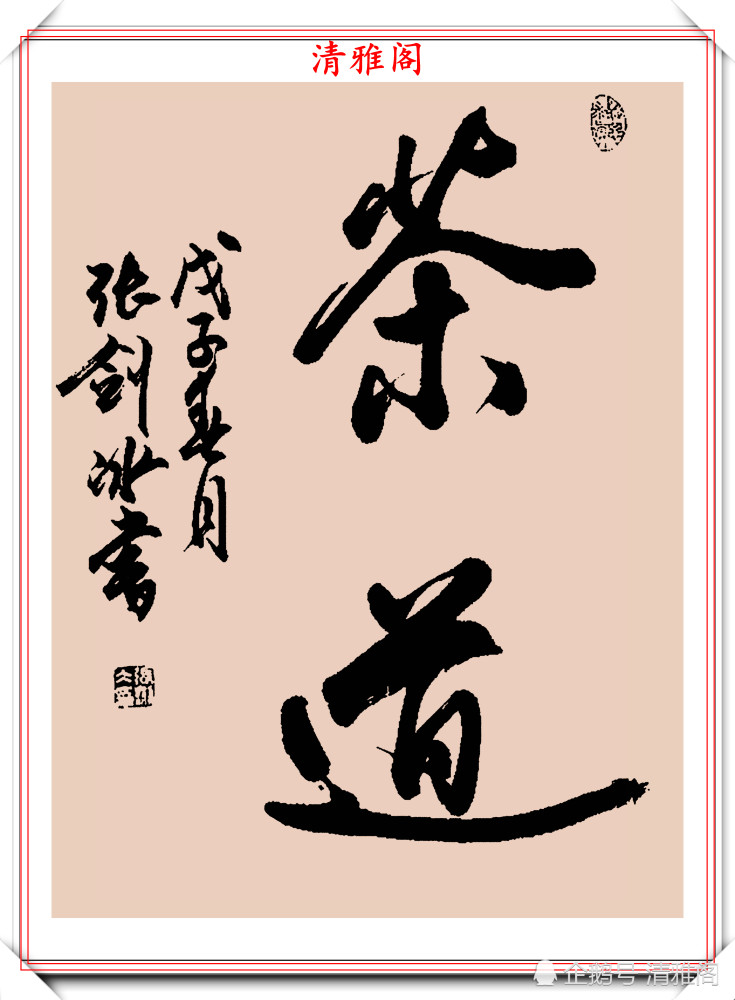 清雅阁
茶道
戊子春月
张剑冰书
企鹅号 清雅阁